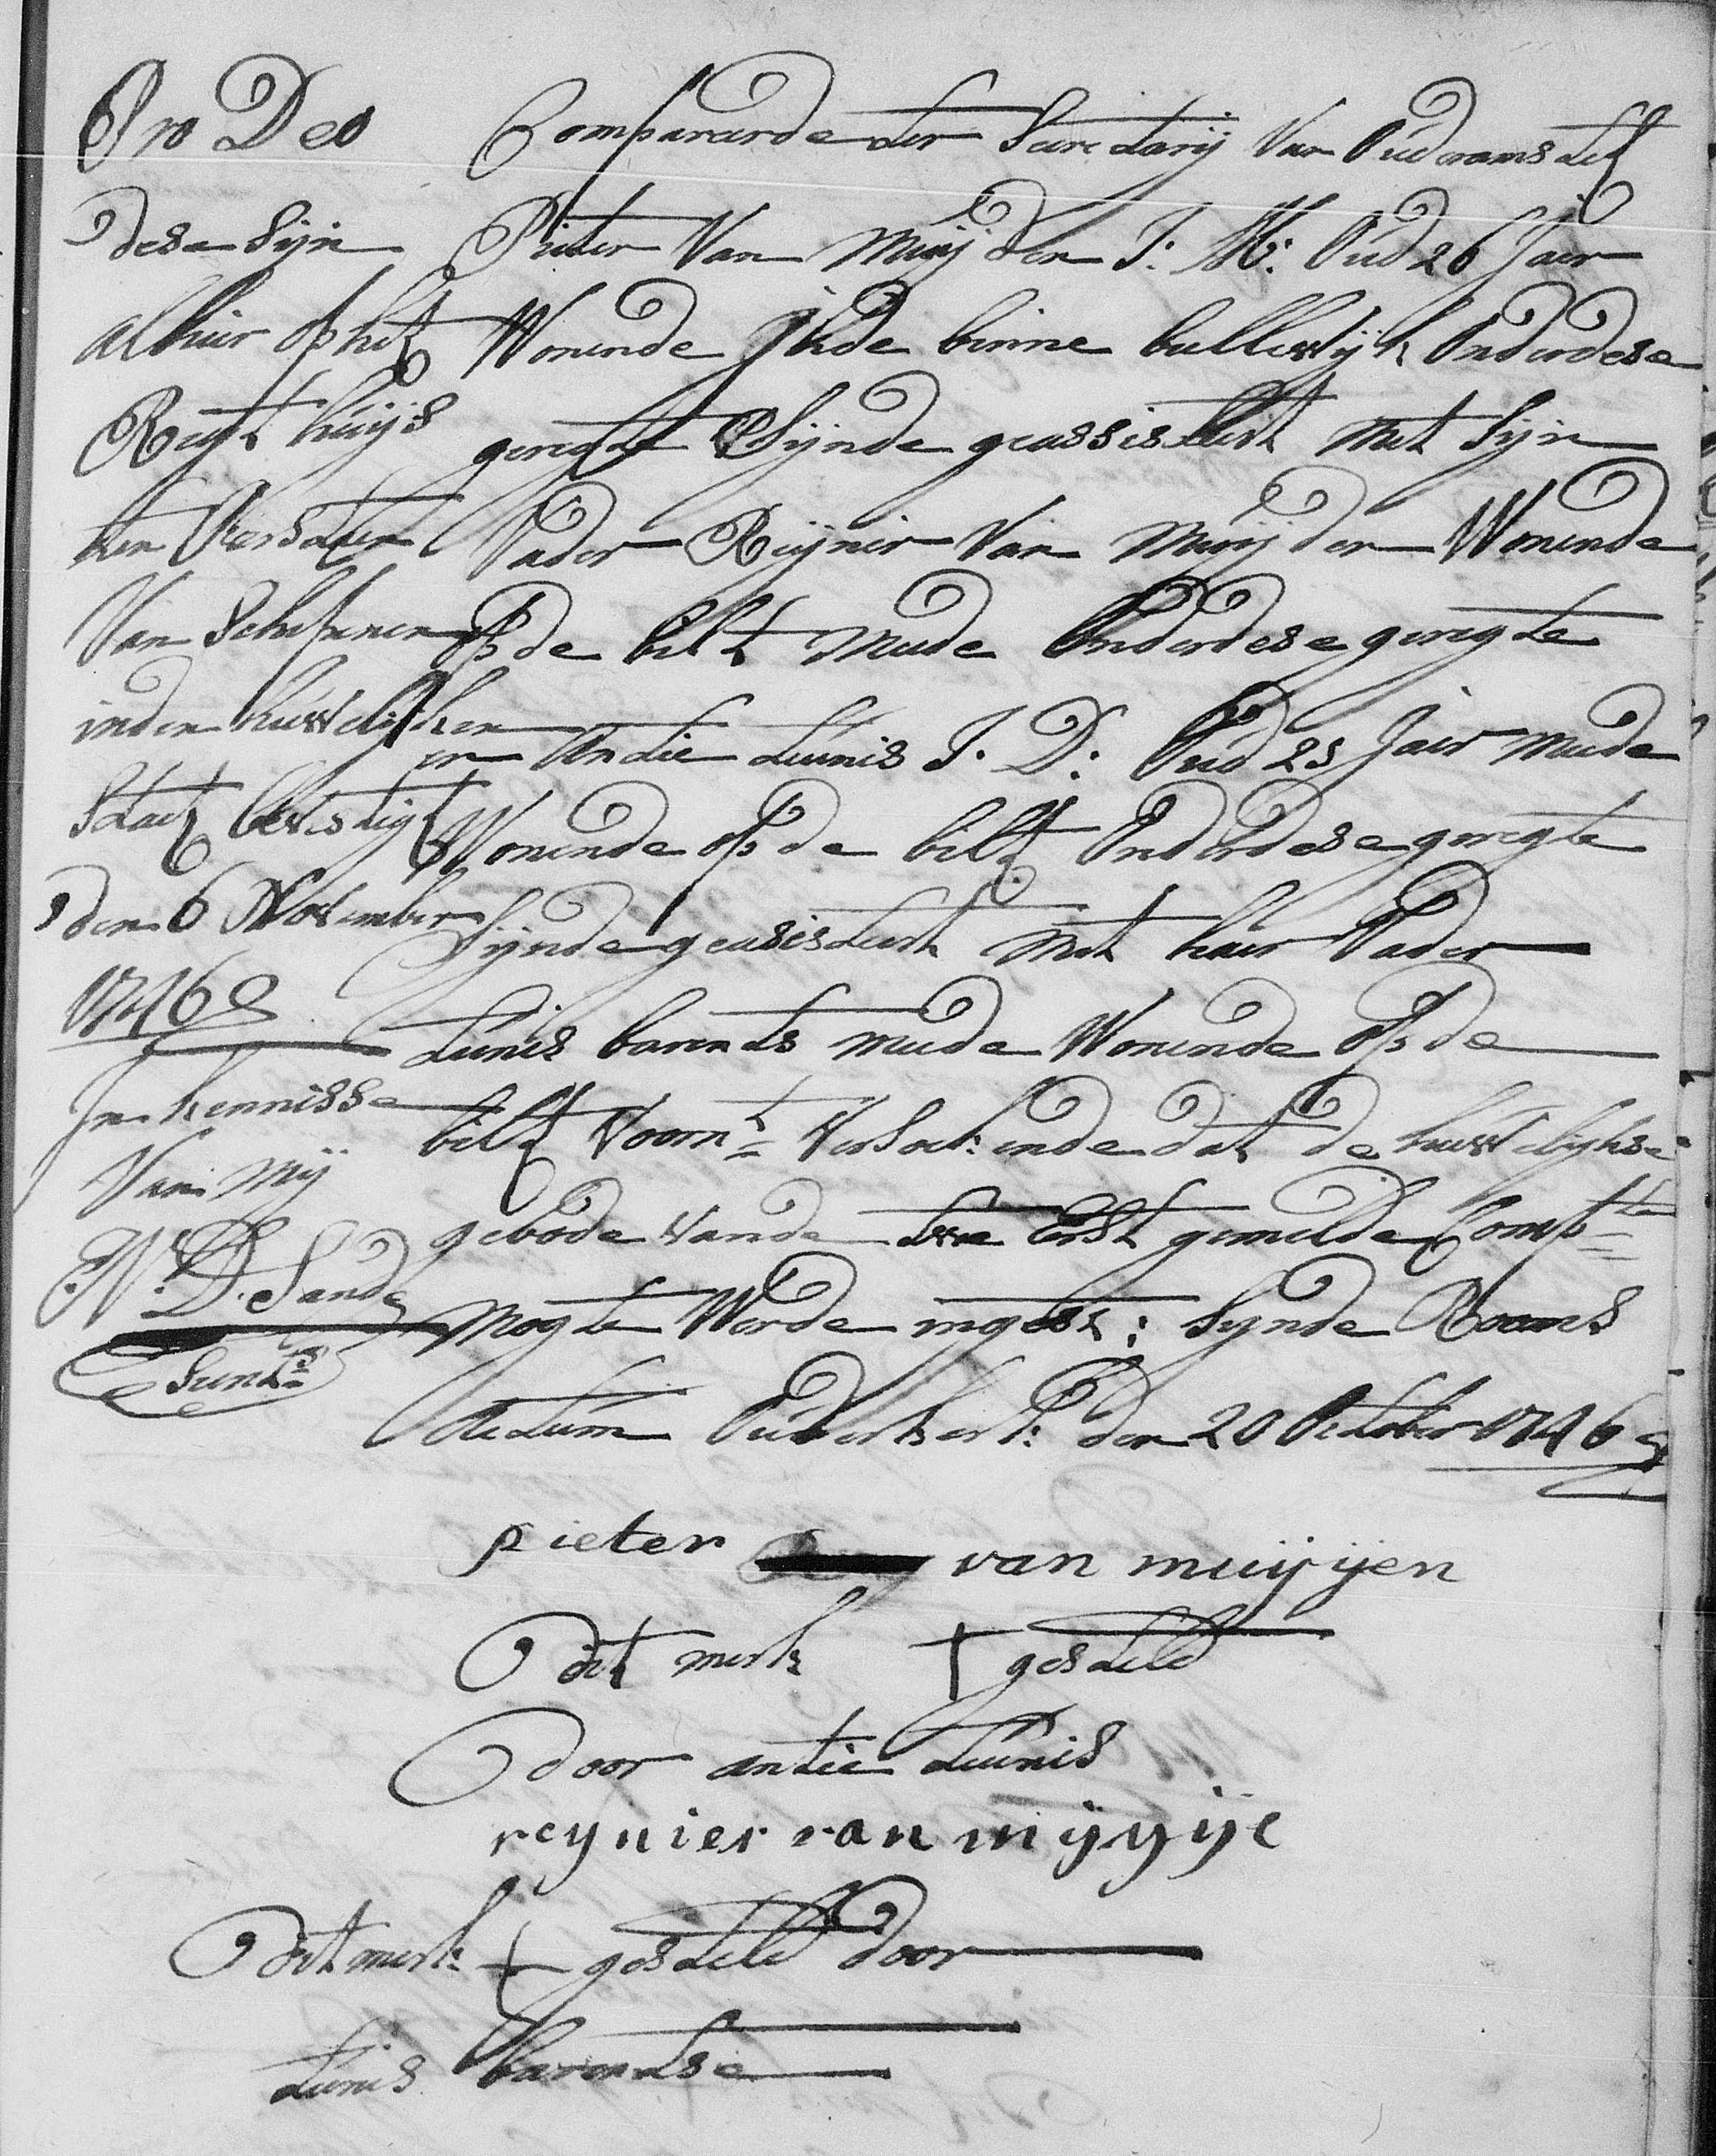 Pro Deo
dese Sijn
alhier op het
Regt huijs
ten Versoeken
Van Schepenen
inden huwelijken
Staet bevestigt
den 6 November
1746
In kennisse
Van mij
N: D: Sande
Secrets
Compareerde ter Secretarij Van Ouderamstel
Pieter Van Muijden J: M: Oud 26 Jaer
Wonende Inde binne bullewijk Onder dese
geregte Sijnde geassisteert met Sijn
Vader Reijnier Van Muijden Wonende
Op de bilt mede Onder dese geregte
en Antie Tunis J: D: Oud 25 Jaer mede
Wonende op de bilt Onder dese geregte
Sijnde geassisteert met haer Vader
Tunis barents mede Wonende Op de
bilt Voornt Versoekende dat de huwelijkse
gebode vande Eerst gemelde Compten
mogte Werde ingest: Sijnde Rooms
Actum Ouderkerk: den 20 October 1746
pieter van muijijen
Dit merk † gestelt
door antie Tunis
reynier van mijyije
Dit merk + gestelt door
Tunis barentse